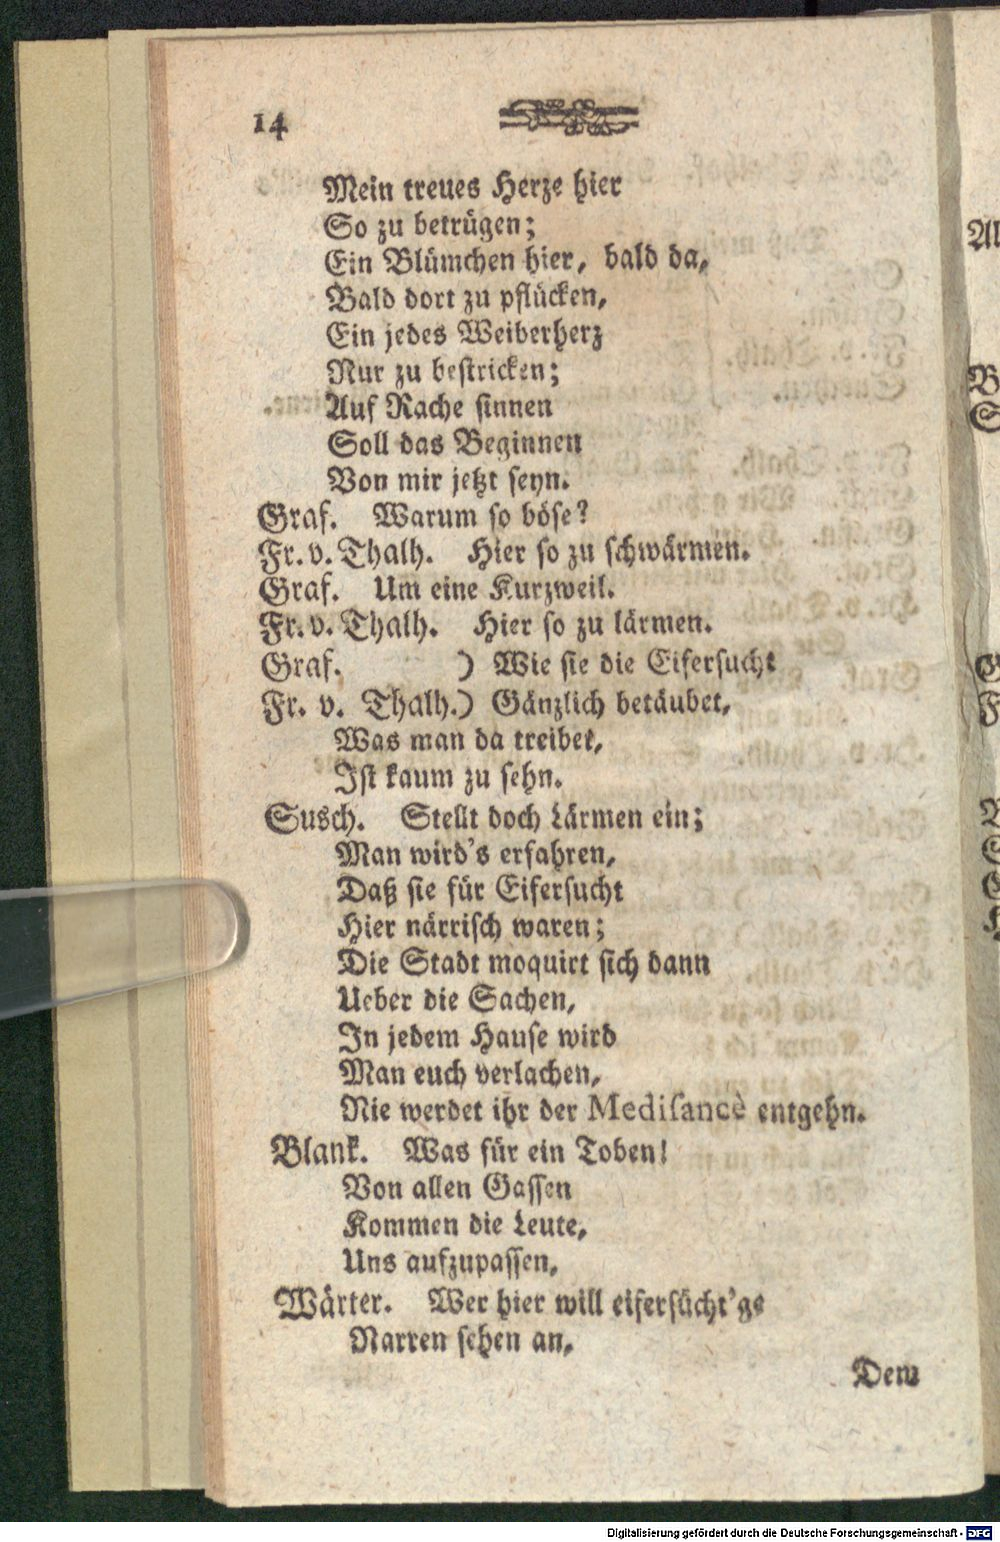 14
Mein treues Herze hier
So zu betrügen;
Ein Blümchen hier, bald da,
Bald dort zu pflücken,
Ein jedes Weiberherz
Nur zu bestricken;
Auf Rache sinnen
Soll das Beginnen
Von mir jetzt seyn.
Graf. Warum so böse?
Fr. v. Thalh. Hier so zu schwärmen.
Graf. Um eine Kurzweil.
Fr. v. Thalh. Hier so zu lärmen.
Graf. ) Wie sie die Eifersucht
Fr. v. Thalh.) Gänzlich betäubet,
Was man da treibet,
Ist kaum zu sehn.
Susch. Stellt doch Lärmen ein;
Man wird's erfahren,
Daß sie für Eifersucht
Hier närrisch waren;
Die Stadt moquirt sich dann
Ueber die Sachen,
In jedem Hause wird
Man euch verlachen,
Nie werdet ihr der Medisance entgehn.
Blank. Was für ein Toben!
Von allen Gassen
Kommen die Leute,
Uns aufzupassen,
Wärter. Wer hier will eifersücht'ge
Narren sehen an,
Dem
Al
B
S
G
F
Digitalisierung gefördert durch die Deutsche Forschungsgemeinschaft - DFG